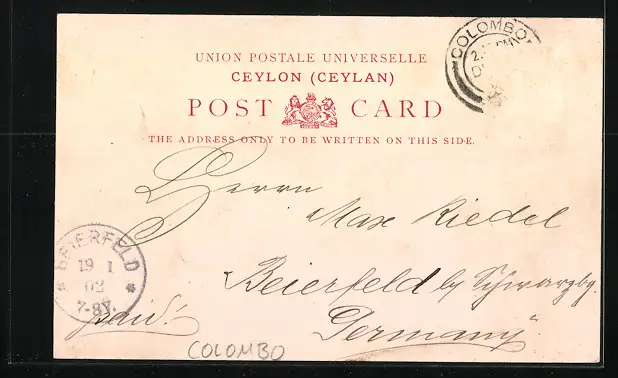 UNION POSTALE UNIVERSELLE
CEYLON (CEYLAN)
POST CARD
THE ADDRESS ONLY TO BE WRITTEN ON THIS SIDE.
COLOMBO
Herrn
Max Riedel
Beierfeld by Schwarzbg.
Germany
BEIERFELD
19 1
02
7-8V.
paid!
COLOMBO